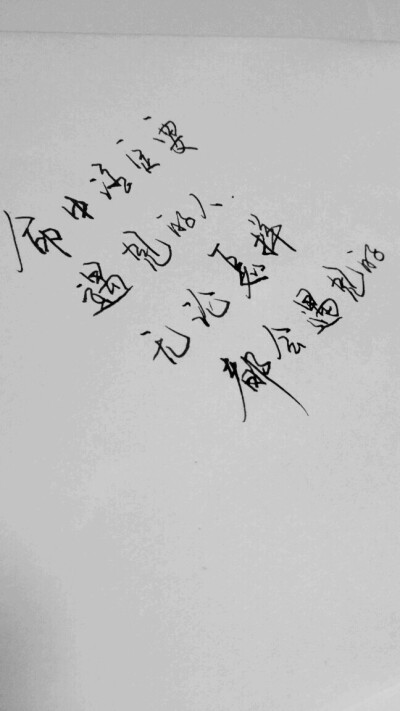 命中注定要
遇见的人
无论怎样
都会遇见的